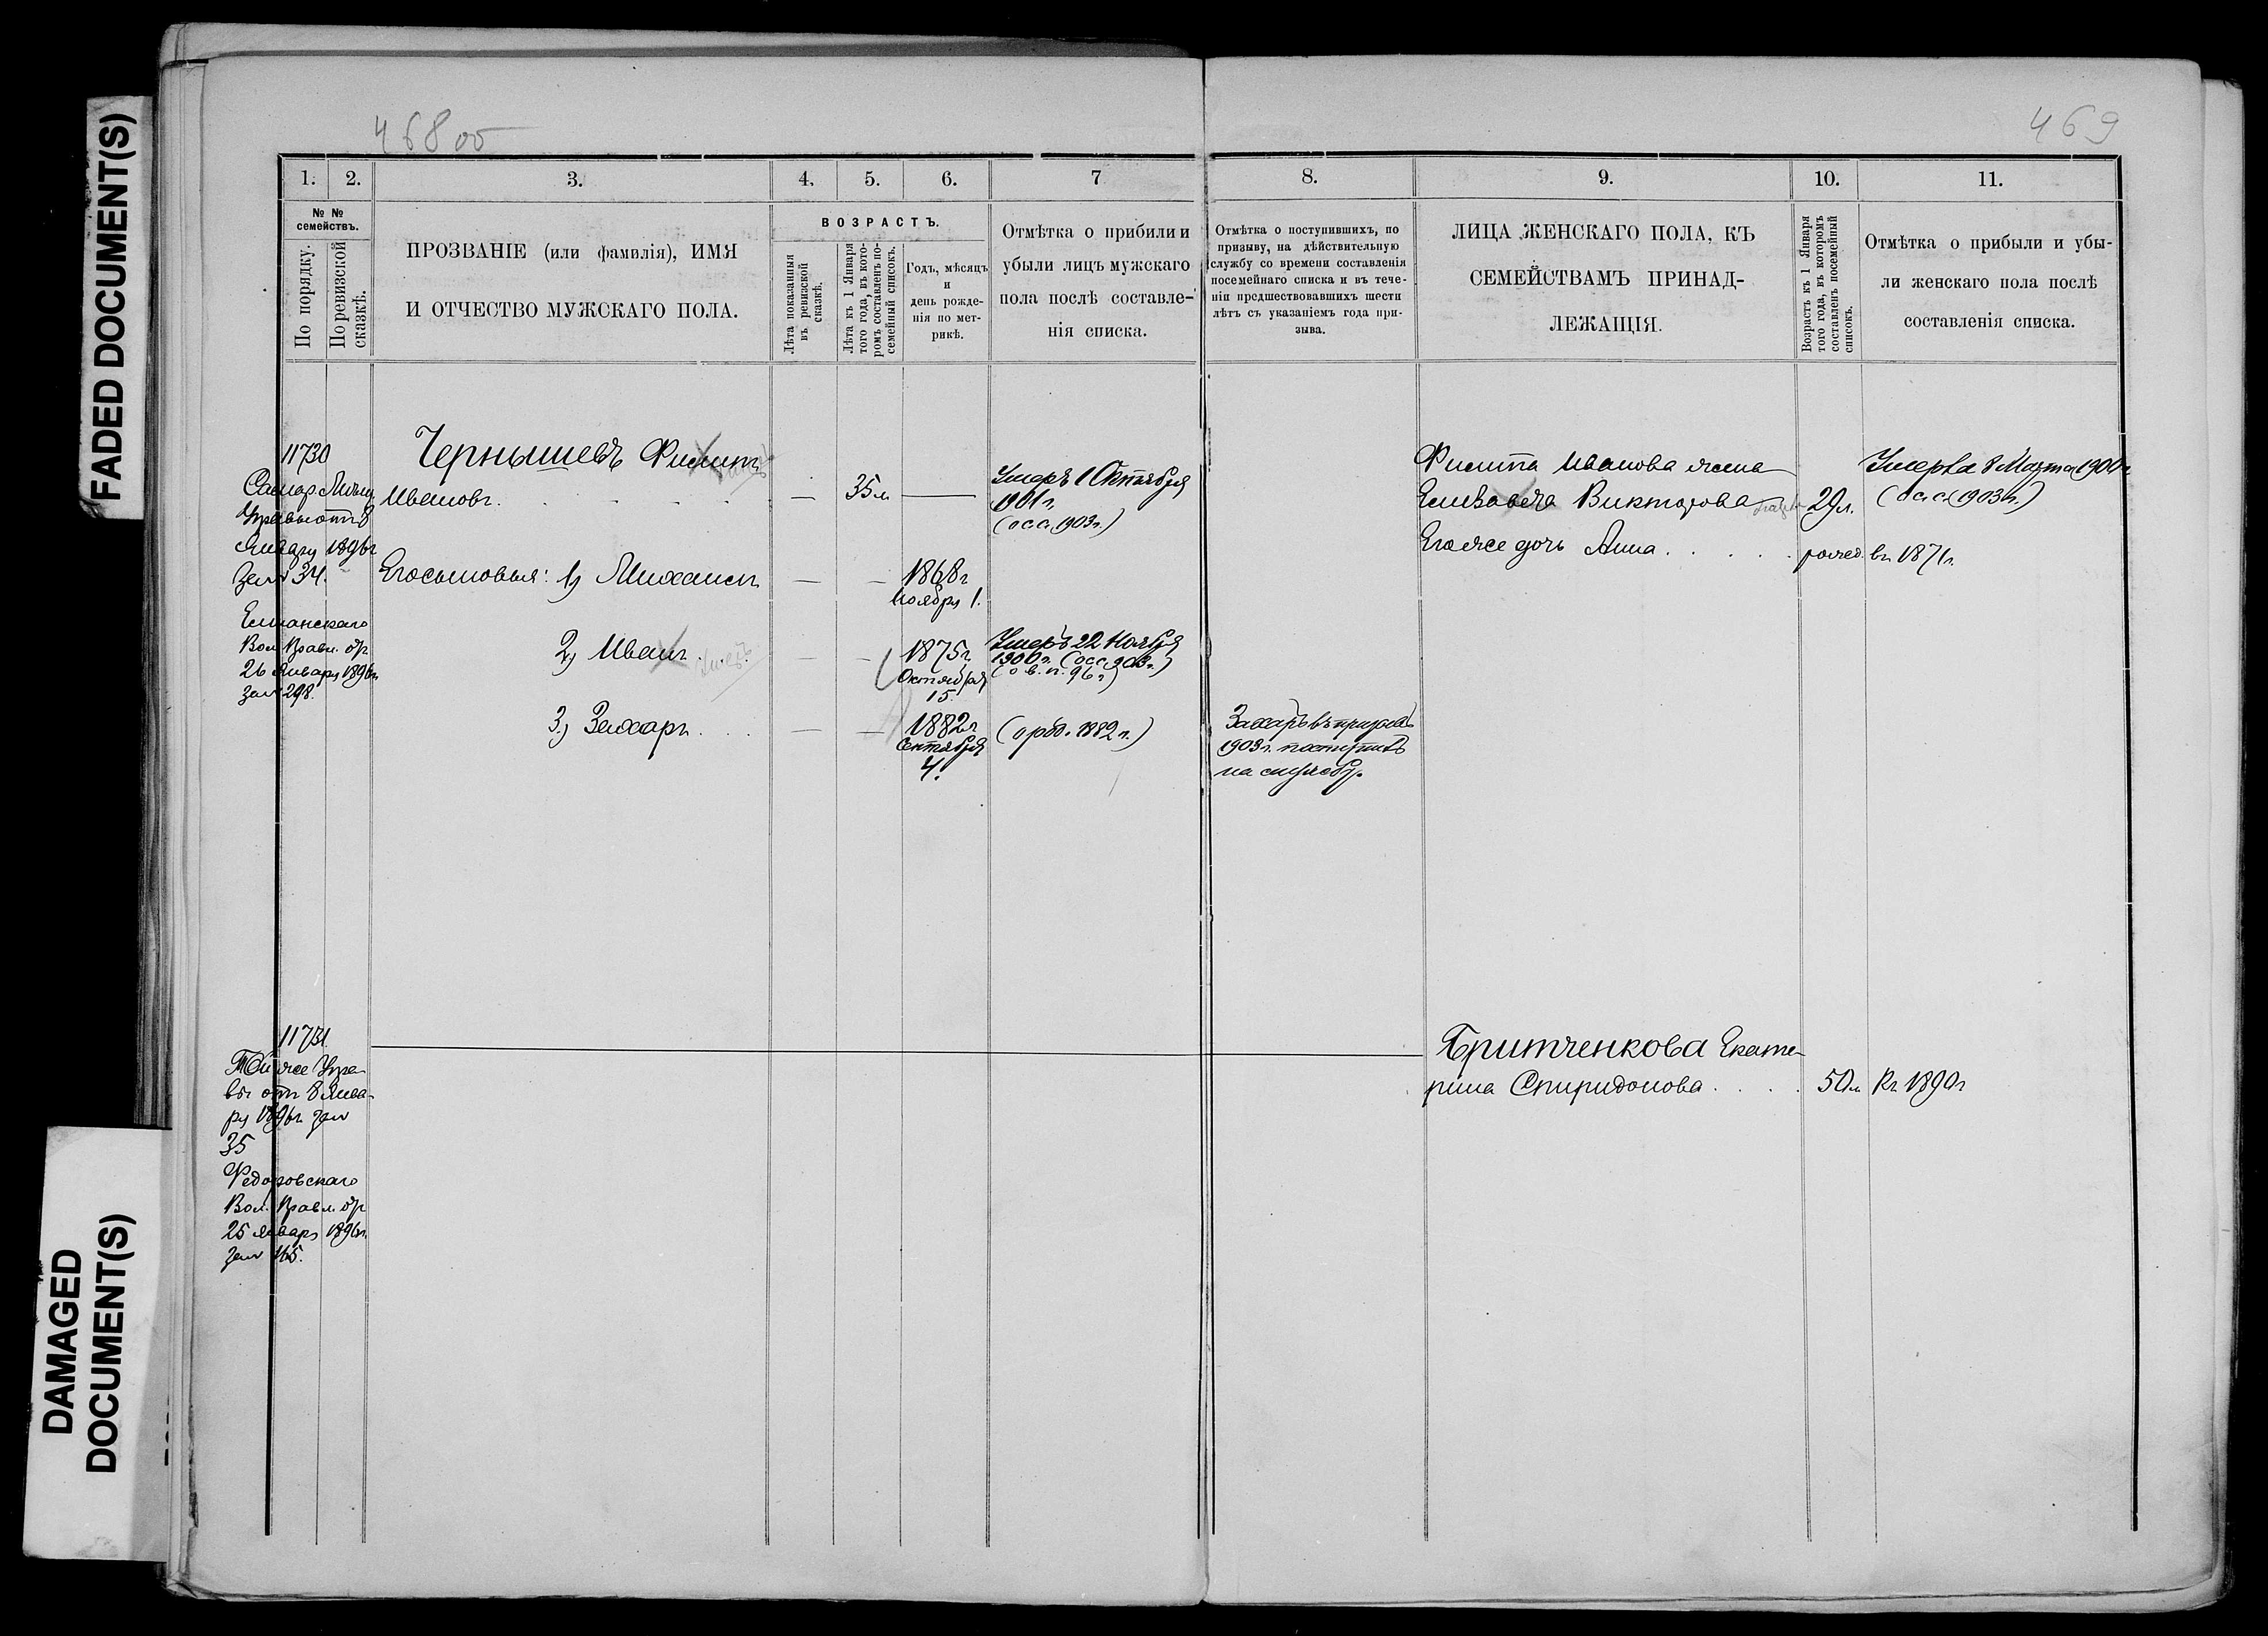 FADED DOCUMENT(S)
DAMAGED
DOCUMENT(S)
468 об
469
1.
2.
3.
4.
5.
6.
7
8.
9.
10.
11.
№ №
семействъ.
По порядку.
По ревизской
сказкѣ.
ПРОЗВАНІЕ (или фамилія), ИМЯ
И ОТЧЕСТВО МУЖСКАГО ПОЛА.
ВОЗРАСТЪ.
Лѣта показанныя
въ ревизской
сказкѣ.
Лѣта къ 1 Января
того года, въ кото-
ромъ составленъ по-
семейный списокъ.
Годъ, мѣсяцъ
и
день рожде-
нія по мет-
рикѣ.
Отмѣтка о прибыли и
убыли лицъ мужскаго
пола послѣ составле-
нія списка.
Отмѣтка о поступившихъ, по
призыву, на дѣйствительную
службу со времени составленія
посемейнаго списка и въ тече-
ніи предшествовавшихъ шести
лѣтъ съ указаніемъ года при-
зыва.
ЛИЦА ЖЕНСКАГО ПОЛА, КЪ
СЕМЕЙСТВАМЪ ПРИНАД-
ЛЕЖАЩІЯ.
Возрастъ къ 1 Января
того года, въ которомъ
составленъ посемейный
списокъ.
Отмѣтка о прибыли и убы-
ли женскаго пола послѣ
составленія списка.
11730
Самар
Управы отъ 8
Января 1896г
за № 34.
Елшанскаго
Вол. Правл. отъ
26 Января 1896г.
за № 298.
Чернышевъ Филипъ
Ивановъ.
— 35 л —
Умеръ 1 Октября
1901 г.
(осс. 1903г.)
Его сыновья: 1, Михаилъ — — 1868 г
Ноября 1.
2, Иванъ — — 1875 г.
Октября
15
Умеръ 22 Ноября
1900 г. (осс. 903г.)
(о в. п. 96 г)
3, Захаръ — — 1882 г
Сентября
4.
(о род. 1882 г.)
Захаръ въ призывъ
1903 г. поступилъ
на службу.
Филипа Иванова жена
Елизавета Викторова 29 л.
Умерла 8 Марта 1900 г
(осс. 1903 г.)
Его же дочь Анна . . . . . рожд. въ 1871 г.
11731
Той же Упра-
вы отъ 8 Янва-
ря 1896г. за №
35
Федоровскаго
Вол. Правл. отъ
25 января 1896г.
за № 165.
Бритченкова Екате-
рина Спиридонова . . . . 50 л Къ 1890 г